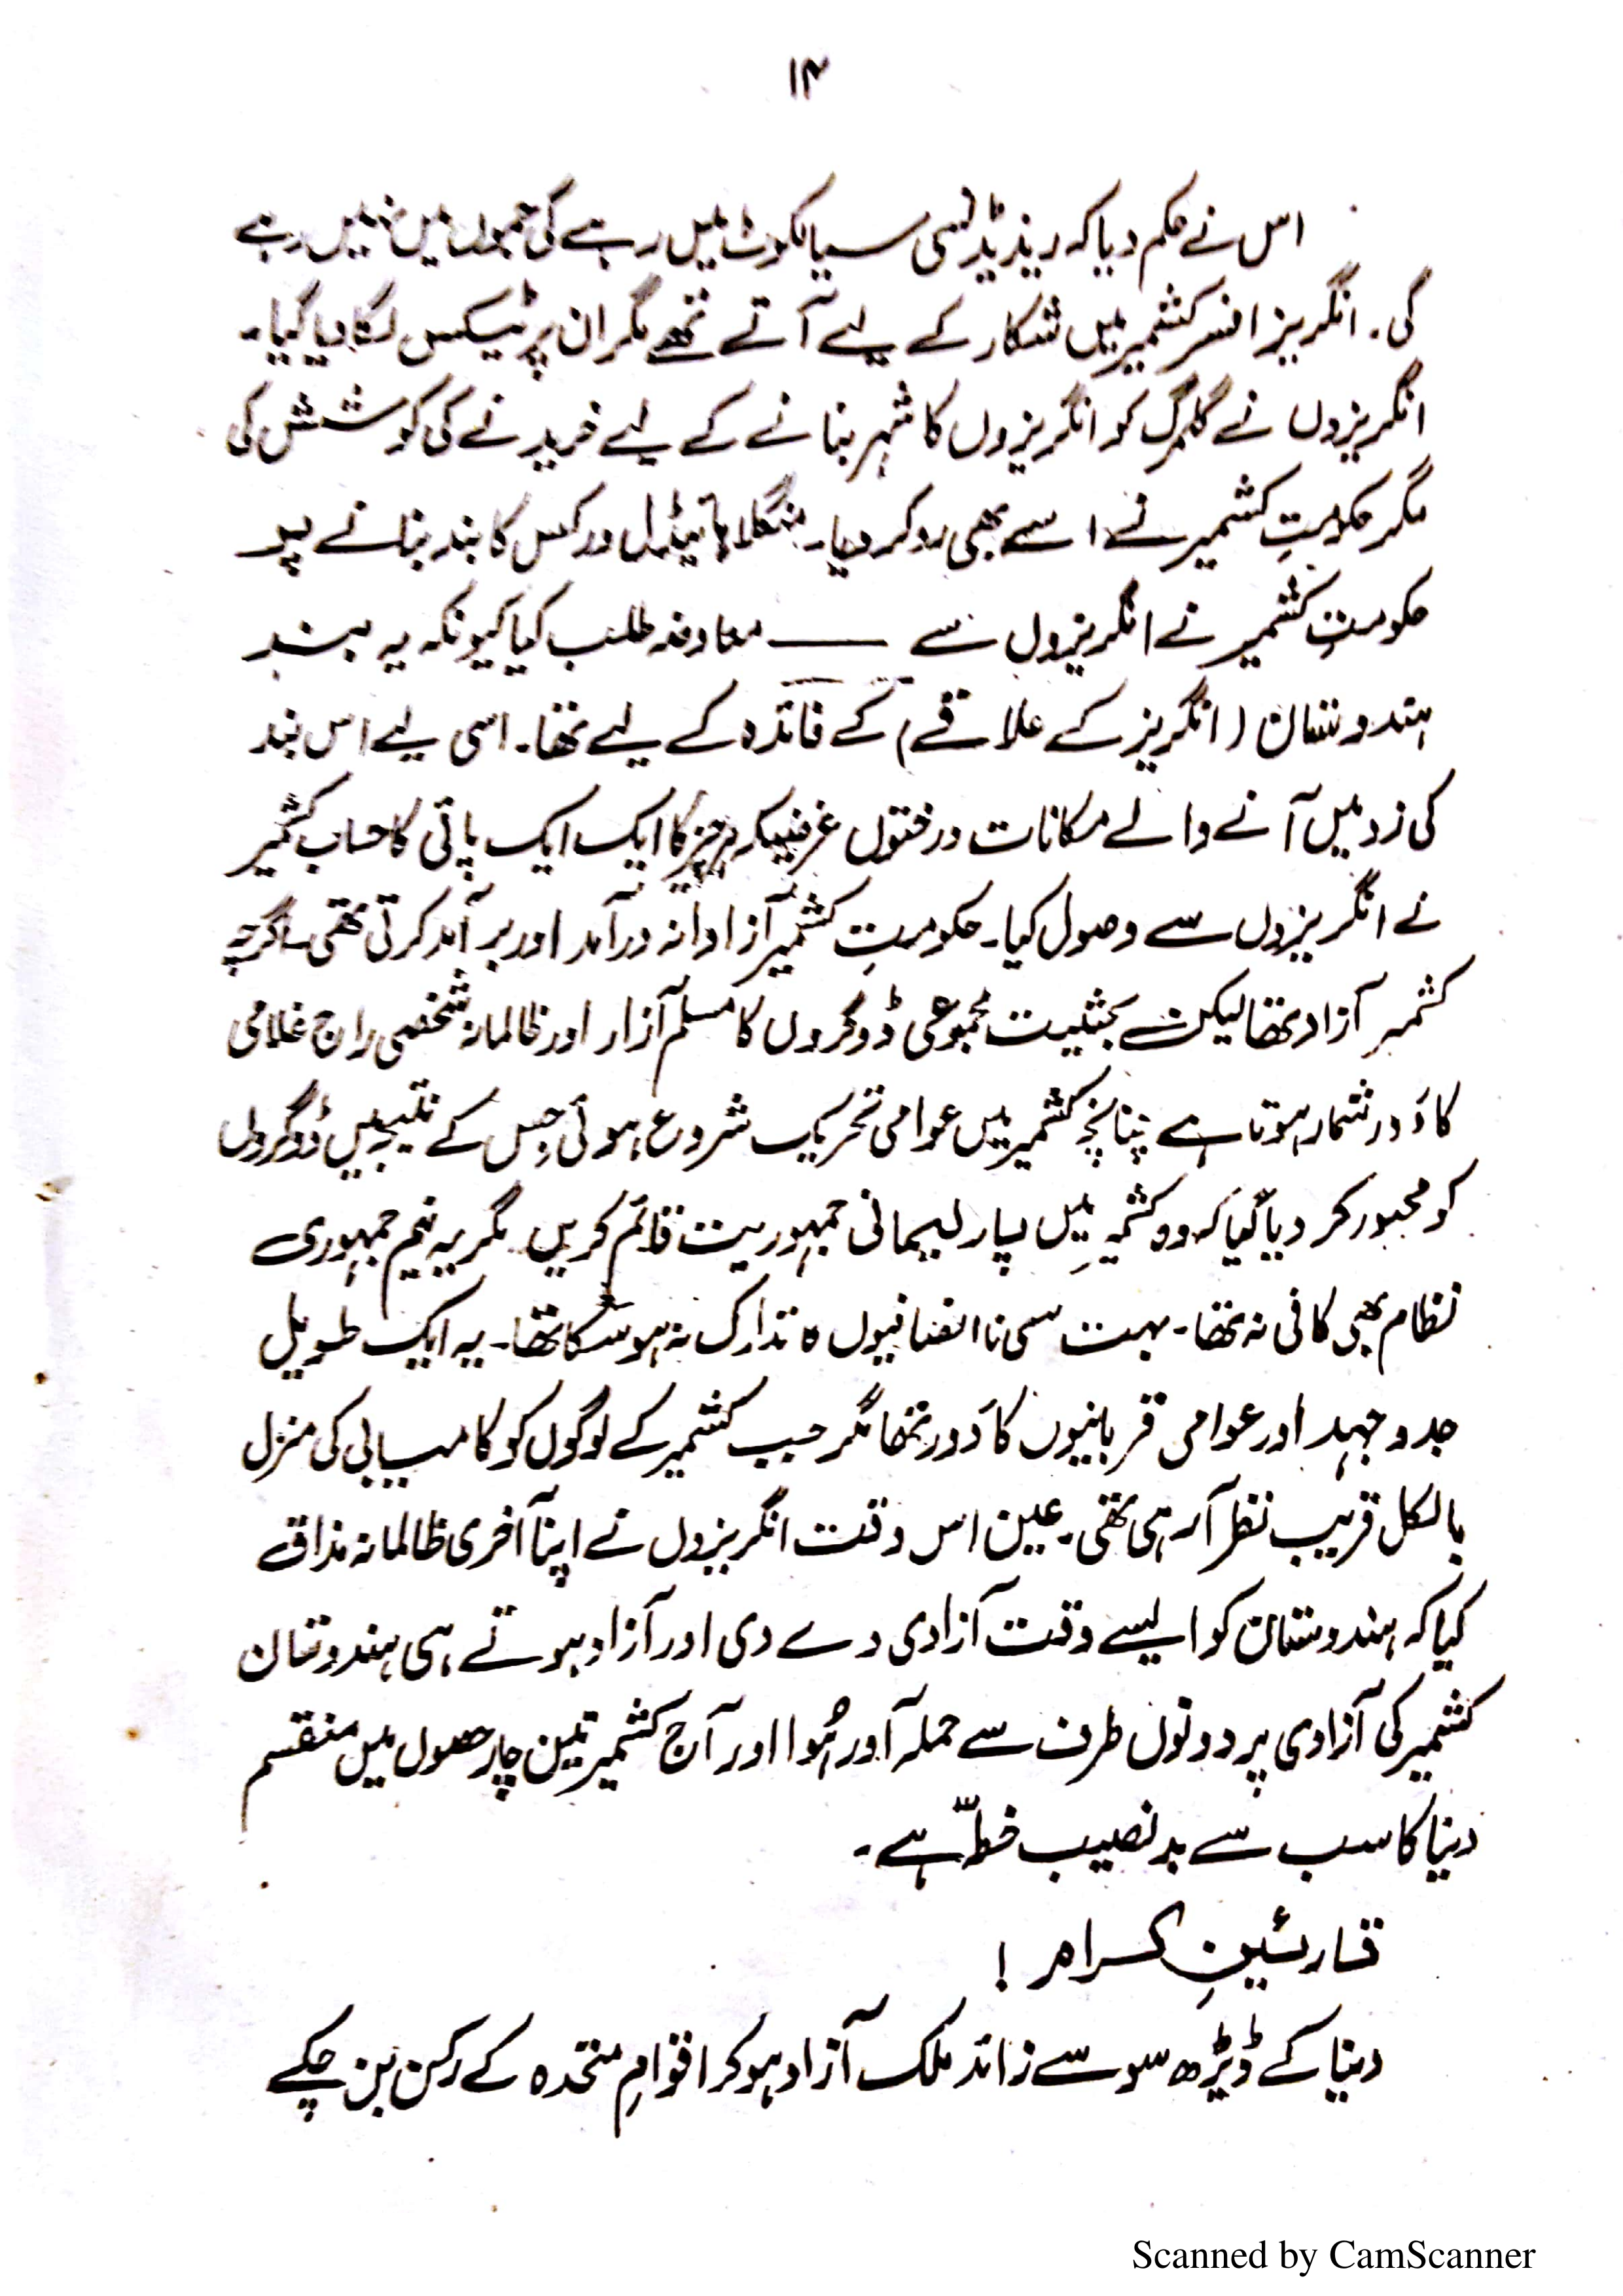 ۱۴
اس نے حکم دیا کہ ریذیڈنسی سیالکوٹ میں رہے گی جموں میں نہیں رہے
گی۔ انگریز افسر کشمیر میں شکار کے لیے آتے تھے مگر ان پر ٹیکس لگا دیا گیا۔
انگریزوں نے گلمرگ کو انگریزوں کا شہر بنانے کے لیے خریدنے کی کوشش کی
مگر حکومتِ کشمیر نے اسے بھی رد کر دیا۔ منگلا ہائیڈل ورکس کا بند بنانے پر
حکومتِ کشمیر نے انگریزوں سے ــــــ معاوضہ طلب کیا کیونکہ یہ بند
ہندوستان (انگریز کے علاقے) کے فائدہ کے لیے تھا۔ اسی لیے اس بند
کی زد میں آنے والے مکانات درختوں غرضیکہ ہر چیز کا ایک ایک پائی کا حساب کشمیر
نے انگریزوں سے وصول کیا۔ حکومتِ کشمیر آزادانہ درآمد اور برآمد کرتی تھی۔ اگرچہ
کشمیر آزاد تھا لیکن بحثیت مجموعی ڈوگروں کا مسلم آزار اور ظالمانہ شخصی راج غلامی
کا دَور شمار ہوتا ہے چنانچہ کشمیر میں عوامی تحریک شروع ہوئی جس کے نتیجہ میں ڈوگروں
کو مجبور کر دیا گیا کہ وہ کشمیر میں پارلیمانی جمہوریت قائم کریں۔ مگر یہ نیم جمہوری
نظام بھی کافی نہ تھا۔ بہت سی ناانصافیوں کا تدارک نہ ہو سکا تھا۔ یہ ایک طویل
جدوجہد اور عوامی قربانیوں کا دَور تھا مگر جب کشمیر کے لوگوں کو کامیابی کی منزل
بالکل قریب نظر آ رہی تھی۔ عین اس وقت انگریزوں نے اپنا آخری ظالمانہ مذاق
کیا کہ ہندوستان کو ایسے وقت آزادی دے دی اور آزاد ہوتے ہی ہندوستان
کشمیر کی آزادی پر دونوں طرف سے حملہ آور ہُوا اور آج کشمیر تین چار حصوں میں منقسم
دنیا کا سب سے بدنصیب خطّہ ہے۔
قارئینِ کرام !
دنیا کے ڈیڑھ سو سے زائد ملک آزاد ہو کر اقوامِ متحدہ کے رکن بن چکے
Scanned by CamScanner